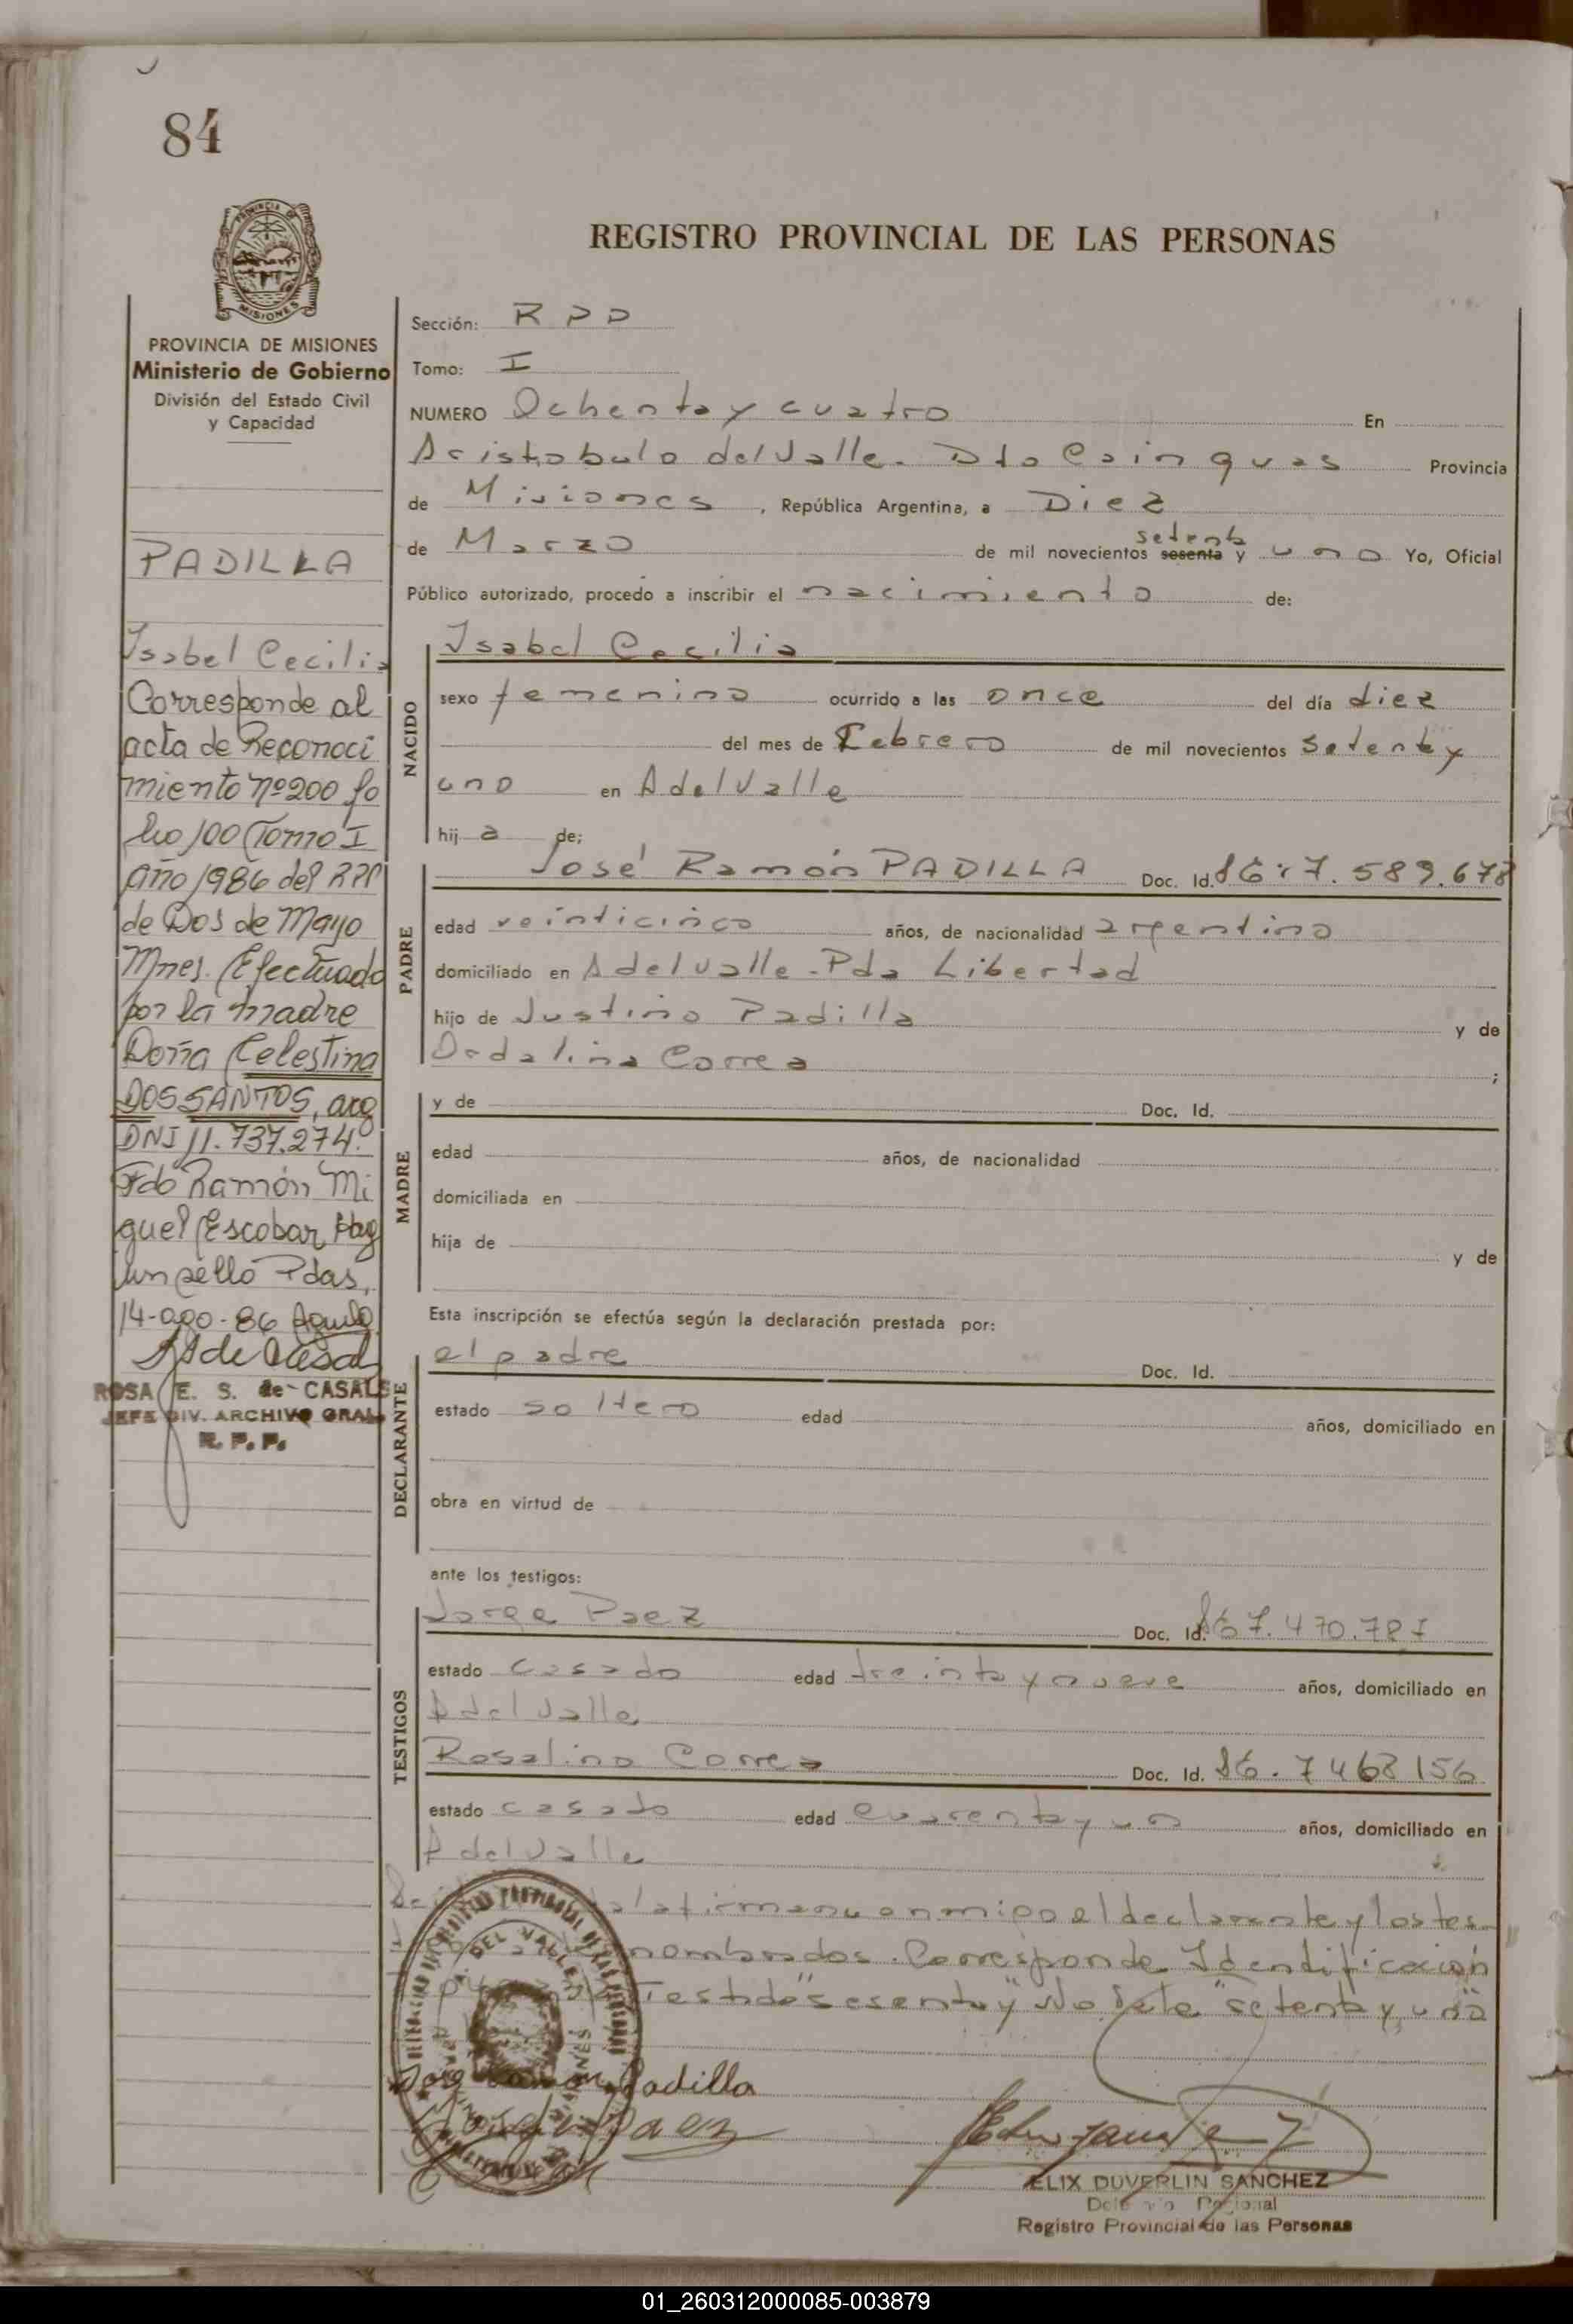 84
REGISTRO PROVINCIAL DE LAS PERSONAS
MISIONES
PROVINCIA DE MISIONES
Ministerio de Gobierno
División del Estado Civil
y Capacidad
PADILLA
Isabel Cecilia
Corresponde al
acta de Reconoci
miento nº 200 fo
lio 100 Tomo I
año 1986 del RPP
de Dos de Mayo
Mnes. Efectuado
por la madre
Doña Celestina
DOS SANTOS, arg
DNI 11.737.274.
Fdo Ramón Mi
guel Escobar, Hay
un sello Pdas,
14-ago-86
ROSA E. S. de CASALS
JEFE DIV. ARCHIVO GRAL.
R. P. P.
Sección: RPP
Tomo: I
NUMERO Ochenta y cuatro En
Aristobulo del Valle. Dto Cainguas Provincia
de Misiones, República Argentina, a Diez
de Marzo de mil novecientos sesenta setenta y uno Yo, Oficial
Público autorizado, procedo a inscribir el nacimiento de:
NACIDO
Isabel Cecilia
sexo femenino ocurrido a las once del día diez
del mes de Febrero de mil novecientos setenta y
uno en A del Valle
hij a de:
PADRE
José Ramón PADILLA Doc. Id. 7.589.678
edad veinticinco años, de nacionalidad argentino
domiciliado en A del Valle - Pda Libertad
hijo de Justino Padilla y de
Ordalina Correa ;
MADRE
y de Doc. Id.
edad años, de nacionalidad
domiciliada en
hija de y de
Esta inscripción se efectúa según la declaración prestada por:
DECLARANTE
el padre Doc. Id.
estado soltero edad años, domiciliado en
obra en virtud de
ante los testigos:
TESTIGOS
Jorge Paez Doc. Id. 7.470.781
estado casado edad treinta y nueve años, domiciliado en
A del Valle
Rosalino Correa Doc. Id. 7468156
estado casado edad cuarenta y un años, domiciliado en
A del Valle
firman conmigo el declarante y los tes
nombrados. Corresponde Identificación
Testado "sesenta y" Vale "setenta y uno"
DEL VALLE
Padilla
Paez
ELIX DUVERLIN SANCHEZ
Registro Provincial de las Personas
01_260312000085-003879